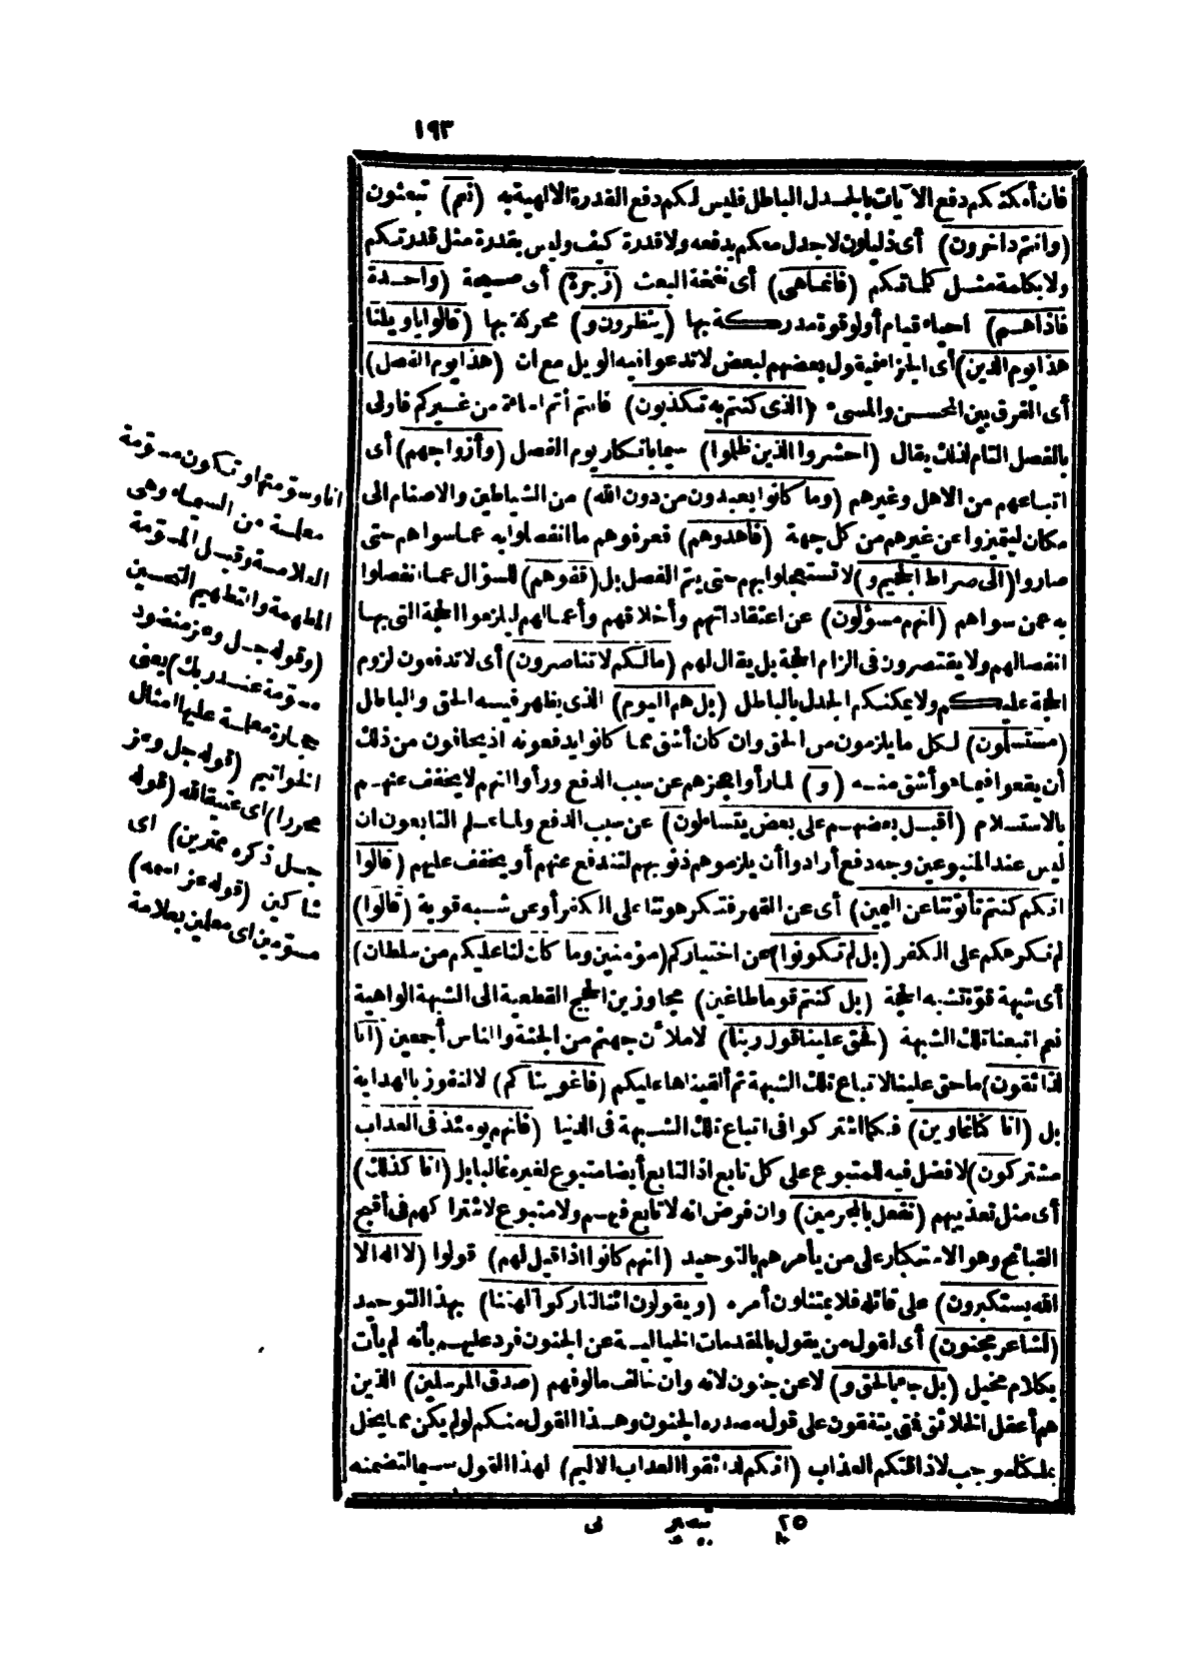 ١٩٣
فان أمكنكم دفع الآيات بالجدل الباطل فليس لكم دفع القدرة الالهية به (نعم) تبعثون
(وانتم داخرون) أى ذليلون لا جدل معكم يدفعه ولا قدرة كيف وليس بقدرة مثل قدرتكم
ولا بكلمة مثل كلماتكم (فانما هى) أى نفخة البعث (زجرة) أى صيحة (واحدة
فاذا هم) احياء قيام أولو قوة مدركة بها (ينظرون و) محركة بها (قالوا ياويلنا
هذا يوم الدين) أى الجزاء فيقول بعضهم لبعض لا تدعوا فيه الويل مع ان (هذا يوم الفصل)
أى الفرق بين المحسن والمسىء (الذى كنتم به تكذبون) فانتم أتم اساءة من غيركم فاولى
بالفصل التام لذلك يقال (احشروا الذين ظلموا) سيما بانكار يوم الفصل (وأزواجهم) أى
اتباعهم من الاهل وغيرهم (وما كانوا يعبدون من دون الله) من الشياطين والاصنام الى
مكان ليتميزوا عن غيرهم من كل جهة (فاهدوهم) فعرفوهم ما انفصلوا به عما سواهم حتى
صاروا (الى صراط الجحيم و) لا تستعجلوا بهم حتى يتم الفصل بل (قفوهم) للسؤال عما انفصلوا
به عمن سواهم (انهم مسؤلون) عن اعتقاداتهم وأخلاقهم وأعمالهم ليلزموا الحجة التى بها
انفصالهم ولا يقتصرون فى الزام الحجة بل يقال لهم (مالكم لا تناصرون) أى لا تدفعون لزوم
الحجة عليكم ولا يمكنكم الجدل بالباطل (بل هم اليوم) الذى يظهر فيه الحق والباطل
(مستسلمون) لكل ما يلزمون من الحق وان كان أشق مما كانوا يدفعونه اذ يخافون من ذلك
أن يقعوا فيما هو أشق منه (و) لما رأوا عجزهم عن سبب الدفع ورأوا انهم لا يخفف عنهم
بالاستسلام (أقبل بعضهم على بعض يتساءلون) عن سبب الدفع ولما علم التابعون ان
ليس عند المتبوعين وجه دفع أرادوا أن يلزموهم ذنوبهم لتندفع عنهم أو يخفف عليهم (قالوا
انكم كنتم تأتوننا عن اليمين) أى عن القهر فتكرهوننا على الكفر أو عن شبه قوية (قالوا)
لم نكرهكم على الكفر (بل لم تكونوا) عن اختياركم (مؤمنين وما كان لنا عليكم من سلطان)
أى شبهة قوّة تشبه الحجة (بل كنتم قوما طاغين) مجاوزين الحجج القطعية الى الشبهة الواهية
نعم اتبعنا تلك الشبهة (فحق علينا قول ربنا) لاملأن جهنم من الجنة والناس أجمعين (انا
لذائقون) ما حق علينا لاتباع تلك الشبهة ثم ألقيناها عليكم (فاغويناكم) لا لنفوز بالهداية
بل (انا كنا غاوين) فكما اشتركوا فى اتباع تلك الشبهة فى الدنيا (فانهم يومئذ فى العذاب
مشتركون) لا فضل فيه للمتبوع على كل تابع اذ التابع أيضا متبوع لغيره غالبا بل (انا كذلك)
أى مثل تعذيبهم (نفعل بالمجرمين) وان فرض انه لا تابع فيهم ولا متبوع لاشتراكهم فى أقبح
القبائح وهو الاستكبار على من يأمرهم بالتوحيد (انهم كانوا اذا قيل لهم) قولوا (لا اله الا
الله يستكبرون) على قائله فلا يمتثلون أمره (ويقولون ائنا لتاركوا آلهتنا) بهذا التوحيد
(لشاعر مجنون) أى لقول من يقول بالمقدمات الخيالية عن الجنون فرد عليهم بأنه لم يأت
بكلام مخيل (بل جاء بالحق و) لا عن جنون لانه وان خالف مألوفهم (صدق المرسلين) الذين
هم أعقل الخلائق فمتى يتفقون على قول مصدره الجنون وهذا القول منكم لو لم يكن مما يخل
بملكنا موجب لاذاقتكم العذاب (انكم لذائقوا العذاب الاليم) لهذا القول سيما لتضمنه
٢٥ تبصير نى
انا وسوّمتها وتكون مسوّمة
معلمة من السيماء وهى
العلامة وقيل المسوّمة
المطهمة والتطهيم التحسين
(وقوله جل وعز منضود
مسوّمة عند ربك) يعنى
حجارة معلمة عليها امثال
الخواتيم (قوله جل وعز
محررا) اى عتيقا لله (قوله
جل ذكره ممترين) اى
شاكين (قوله عز اسمه)
مسوّمين اى معلمين بعلامة